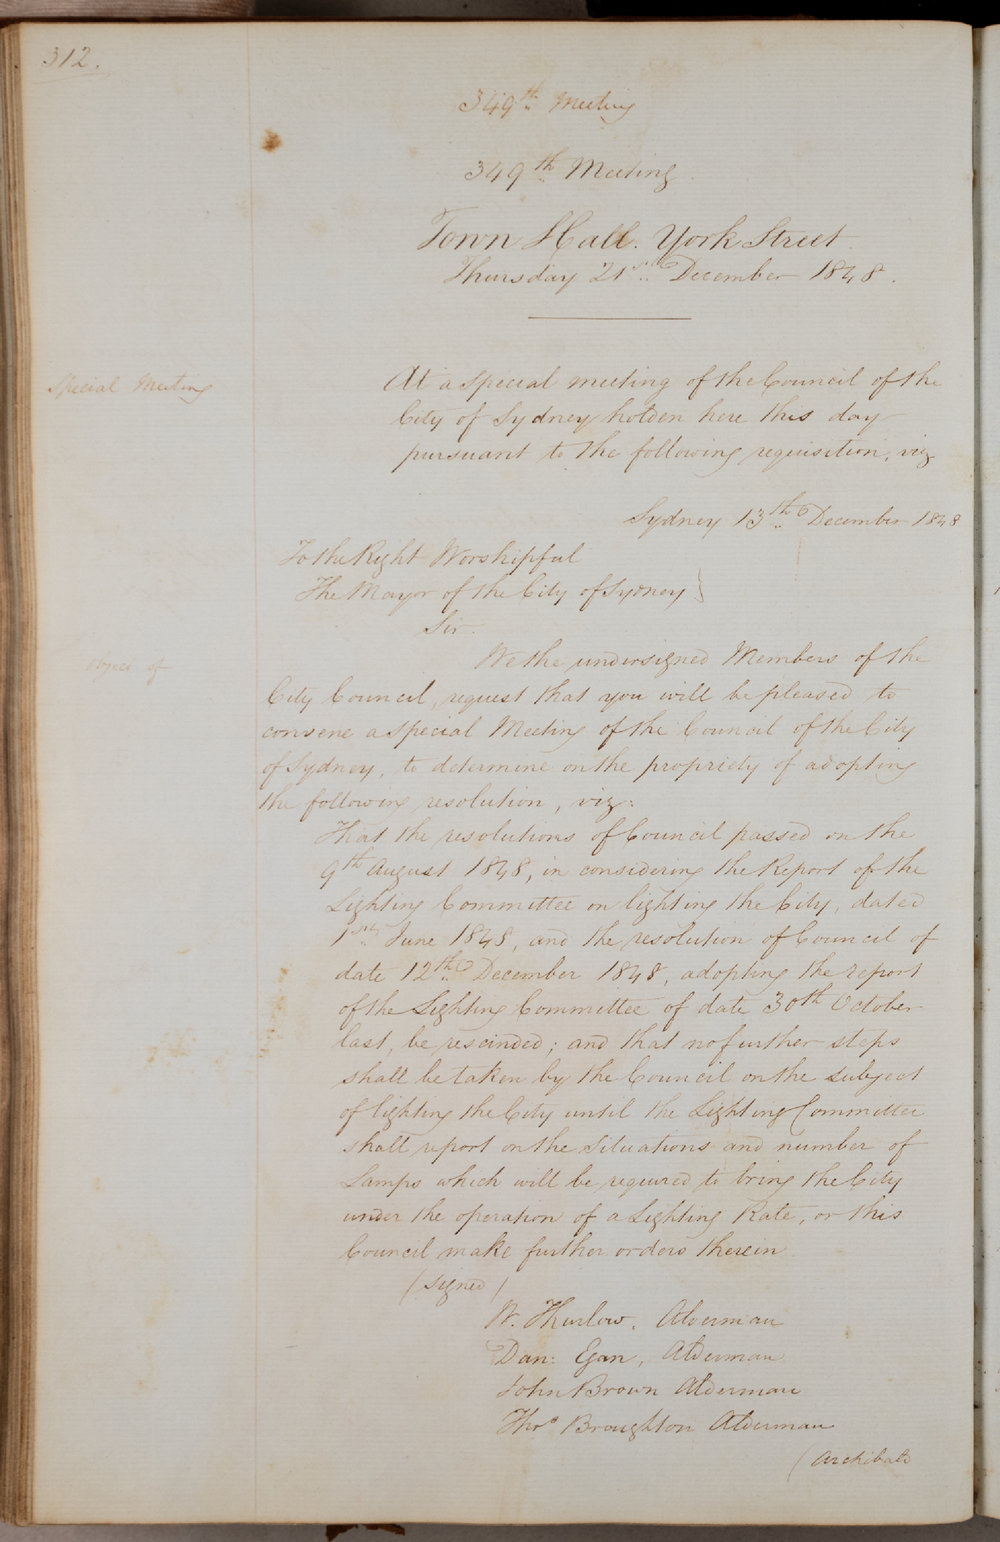 312.
349th Meeting
349th Meeting
Town Hall. York Street
Thursday 21st December 1848.
Special Meeting
At a special meeting of the Council of the
City of Sydney holden here this day
pursuant to the following requisition, viz
Sydney 13th December 1848
To the Right Worshipful
The Mayor of the City of Sydney }
Sir.
Object of
We the undersigned Members of the
City Council, request that you will be pleased to
convene a special Meeting of the Council of the City
of Sydney, to determine on the propriety of adopting
the following resolution, viz:
That the resolutions of Council passed on the
9th August 1848, in considering the Report of the
Lighting Committee on lighting the City, dated
1st June 1848, and the resolution of Council of
date 12th December 1848, adopting the report
of the Lighting Committee of date 30th October
last, be rescinded; and that no further steps
shall be taken by the Council on the subject
of lighting the City until the Lighting Committee
shall report on the situations and number of
Lamps which will be required to bring the City
under the operation of a Lighting Rate, or this
Council make further orders therein
(signed)
W. Thurlow. Alderman
Dan: Egan, Alderman
John Brown Alderman
Thos Broughton Alderman
(Archibald